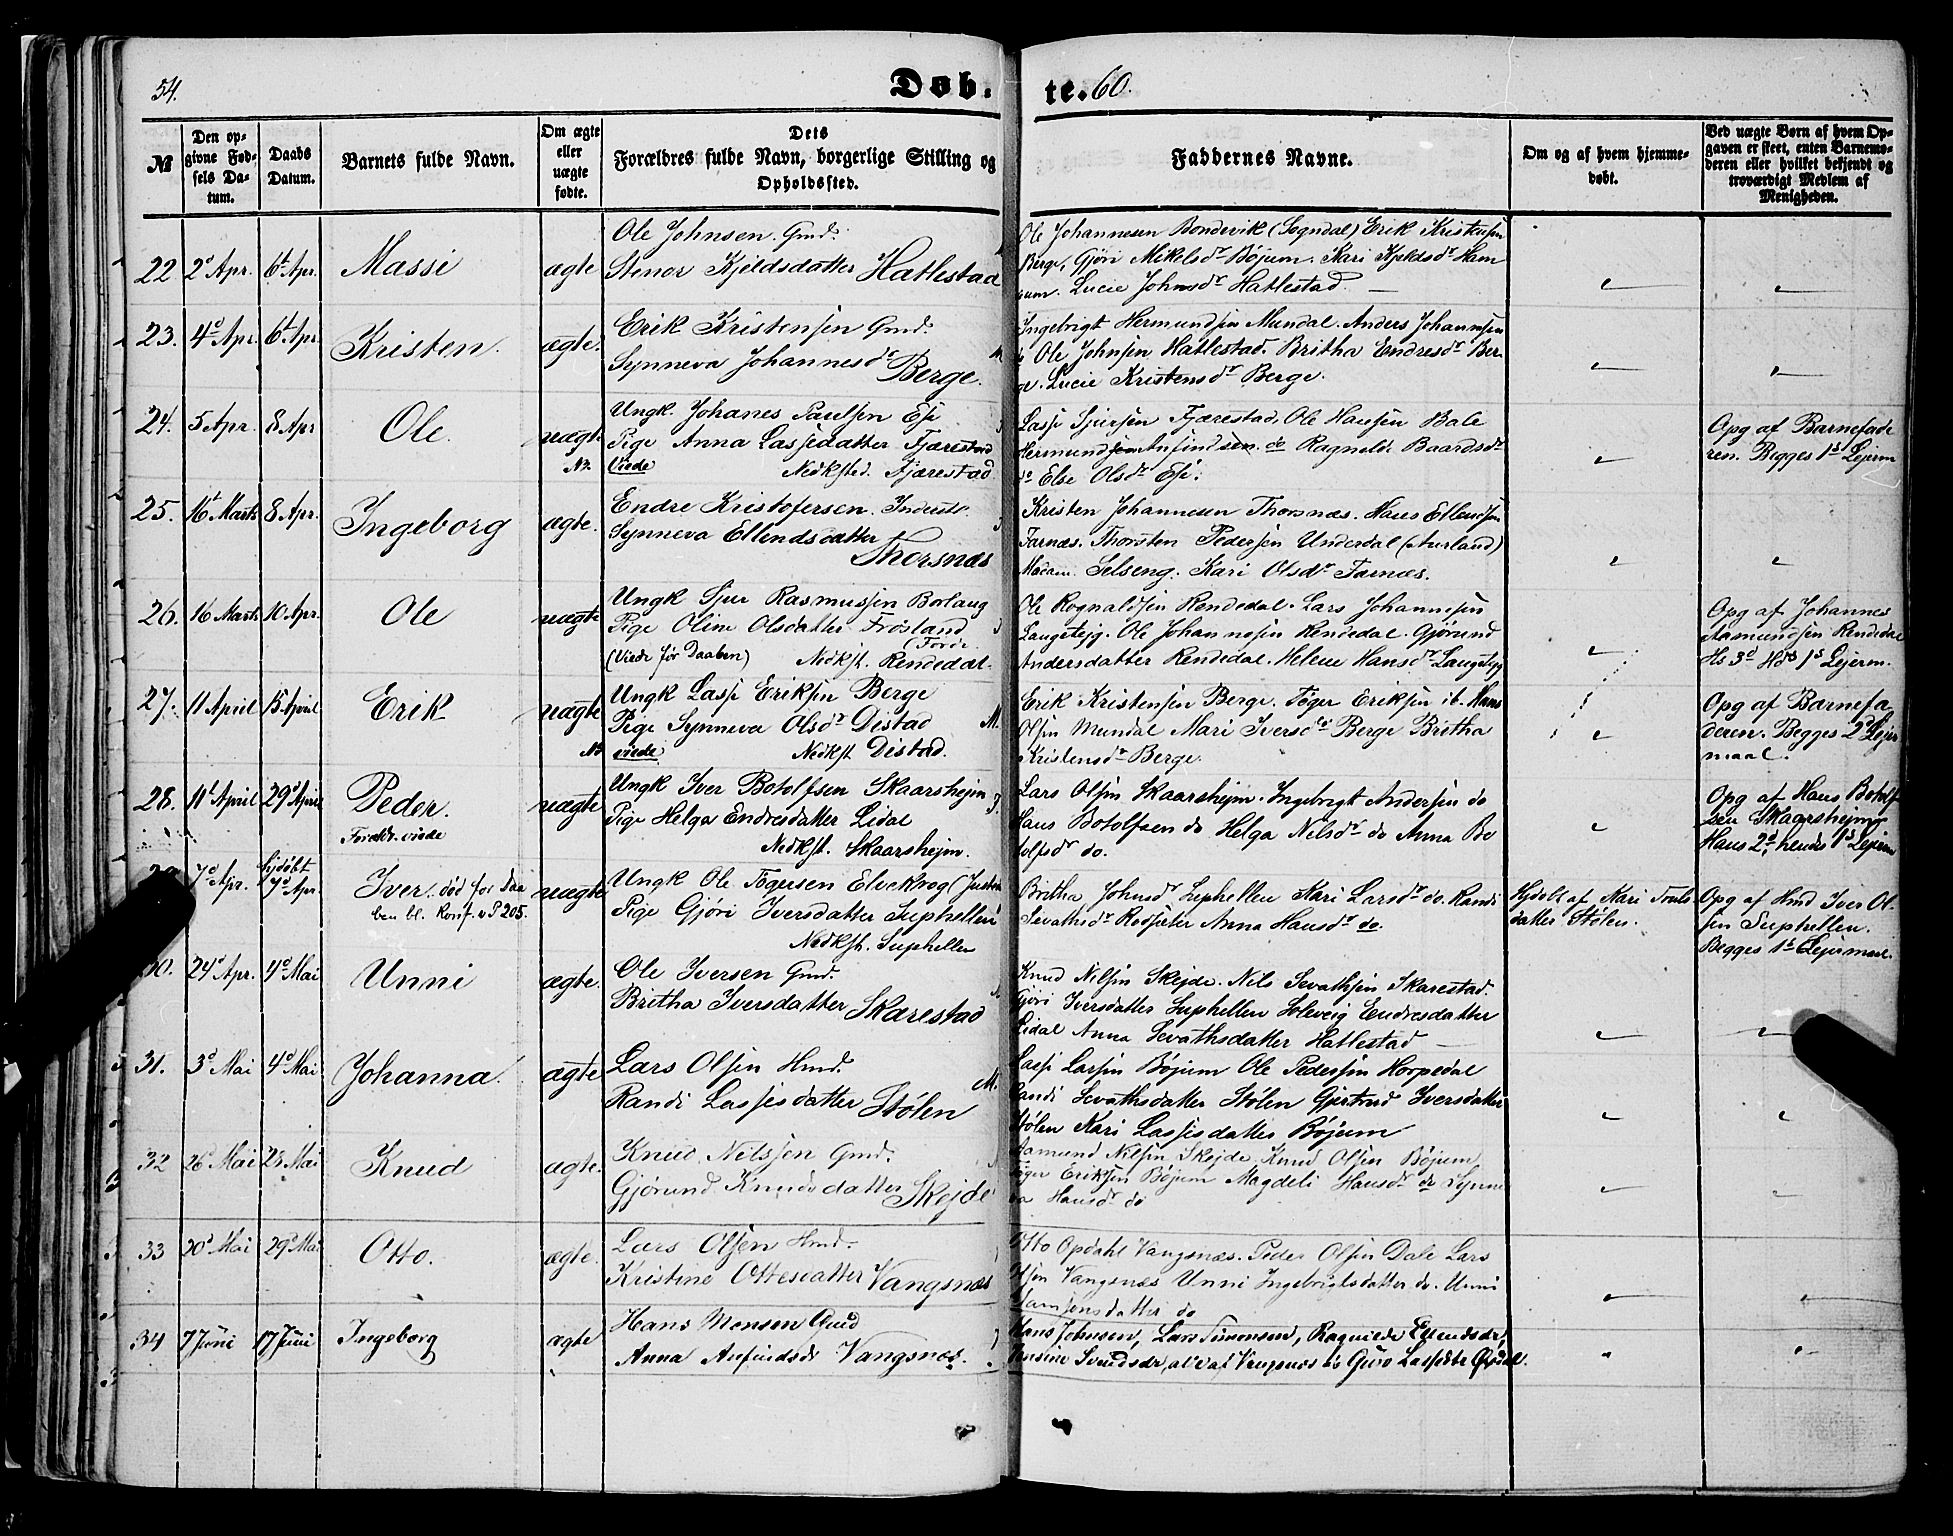 54.
Døb-
te. 60.
№
Den op-
givne Fød-
sels Da-
tum.
Daabs
Datum.
Barnets fulde Navn.
Om ægte
eller
uægte
fødte.
Dets
Forældres fulde Navn, borgerlige Stilling og
Opholdssted.
Faddernes Navne.
Om og af hvem hjemme-
døbt.
Ved uægte Børn af hvem Op-
gaven er skeet, enten Barnemo-
deren eller hvilket bekjendt og
troværdigt Medlem af
Menigheden.
22 2d Apr. 6t Apr. Massi ægte
Ole Johnsen Gmd.
Stenor Kjeldsdatter Hatlestad
Ole Johannesen Bondevik (Sogndal) Erik Kristensen
Berge, Gjøri Mikelsdr Bøjum. Kari Kjeldsdr Ham
gum. Lucie Johnsdr Hatlestad. —
23. 4d Apr. 6t Apr. Kristen. ægte.
Erik Kristensen Gmd.
Synneva Johannesdr Berge.
Ingebrigt Hermundsen Mundal. Anders Johannsen
Ole Johnsen Hatlestad. Britha Endresdr Ber-
ge. Lucie Kristensdr Berge.
24. 5 Apr. 8 Apr Ole. uægte
Ungk. Johanes Paulsen Ese
Pige Anna Lassedatter Fjærestad
Nb. Viede Nedksted. Fjærestad
Lasse Sjursen Fjærestad. Ole Hansen Bale
Hermundsen Anfindsen do Ragnelde Baardsdr
do Else Olsdr Ese.
Opg af Barnefade
ren. Begges 1s Lejerm
25. 16t Marts 8 Apr. Ingeborg ægte.
Endre Kristofersen Inderst
Synneva Ellendsdatter
Thorsnæs
Kristen Johannesen Thorsnæs. Hans Ellendsen
Farnæs. Thorsten Pedersen Underdal (Aurland)
Madam Selseng. Kari Olsdr Farnæs.
26. 16 Marts 10 Apr. Ole uægte
Ungk Sjur Rasmussen Borlaug
Pige Oline Olsdatter Frosland
(Førde
(Viede før Daaben) Nedkst. Rendedal.
Ole Rognaldsen Rendedal. Lars Johannesen
Langetejg. Ole Johannesen Rendedal. Gjørund
Andersdatter Rendedal. Helene Hansdr Langeteyg
Opg af Johannes
Aamundsen Rendedal
Hs 3d Hds 1s Lejerm.
27. 11 April 15 April Erik uægte
Ungk Lasse Eriksen Berge
Pige Synneva Olsdr Distad M.
Nb viede Nedkst Distad.
Erik Kristensen Berge. Føger Eriksen ib. Hans
Olsen Mundal Mari Iversdr Berge Britha
Kristensdr Berge.
Opg af Barnefa
deren. Begges 2d Lejer
maal.
28. 11t April 29d April Peder. uægte
Foreldr. viede
Ungk Iver Botolfsen Skaarshejm
Pige Helga Endresdatter Lidal
Nedkst. Skaarshejm.
Lars Olsen Skaarshejm. Ingebrigt Andersen do
Hans Botolfsen do Helga Nelsdr do Anna Bo
tolfsdr do.
Opg af Hans Botolf
sen Skaarshejm
Hans 2d, hendes 1s Lejerm
7d Apr. hjdøbt
7d Apr. Iver. død før Daa
ben bl. Konf. v P 205. uægte
Ungk Ole Togersen Elvekrog (Justed
Pige Gjøri Iversdatter Suphellen
Nedkst. Suphellen
Britha Johnsdr Suphellen Kari Larsdr do. Randi
Sevathsdr Rødseter Anna Hansdr do.
Hjdøbt af Kari Truls
datter Stølen.
Opg af Hmd Iver Ol-
sen Suphellen.
Begges 1s Lejermaal.
30. 24d Apr. 4d Mai Unni ægte.
Ole Iversen Gmd.
Britha Iversdatter Skarestad
Knud Nilsen Skejde. Nils Sevathsen Skarestad.
Gjøri Iversdatter Suphellen Solveig Endresdatter
Lidal Anna Sevathsdatter Hatlestad —
31. 3d Mai 4d Mai Johanna. ægte
Lars Olsen Hmd.
Randi Lassesdatter Stølen M.
Lasse Larsen Bøjum Ole Pedersen Horpedal
Randi Sevathsdatter Stølen Gjertrud Iversdatter
Stølen Kari Lassesdatter Bøjum
32 26d Mai 28 Mai Knud ægte.
Knud Nilssen Gmd.
Gjørund Knudsdatter Skejde
Aamund Nilsen Skejde Knud Olsen Bøjum
Føger Eriksen Bøjum Magdeli Hansdr do Synne
va Hansdr do
33 20d Mai 29d Mai Otto. ægte.
Lars Olsen Hmd.
Kristine Ottesdatter Vangsnæs
Otto Opdahl Vangsnæs. Peder Olsen Dale Lars
Olsen Vangsnæs Unni Ingebrigtsdatter do. Unni
Samsonsdatter do
34 7 Juni 17 Juni Ingeborg ægte
Hans Monsen Gmd
Anna Anfindsdr Vangsnæs.
Hans Johnsen, Lars Simonsen, Ragnilde Erlendsdr,
Svendsdr, alle af Vangsnæs do Guro Lassedtr